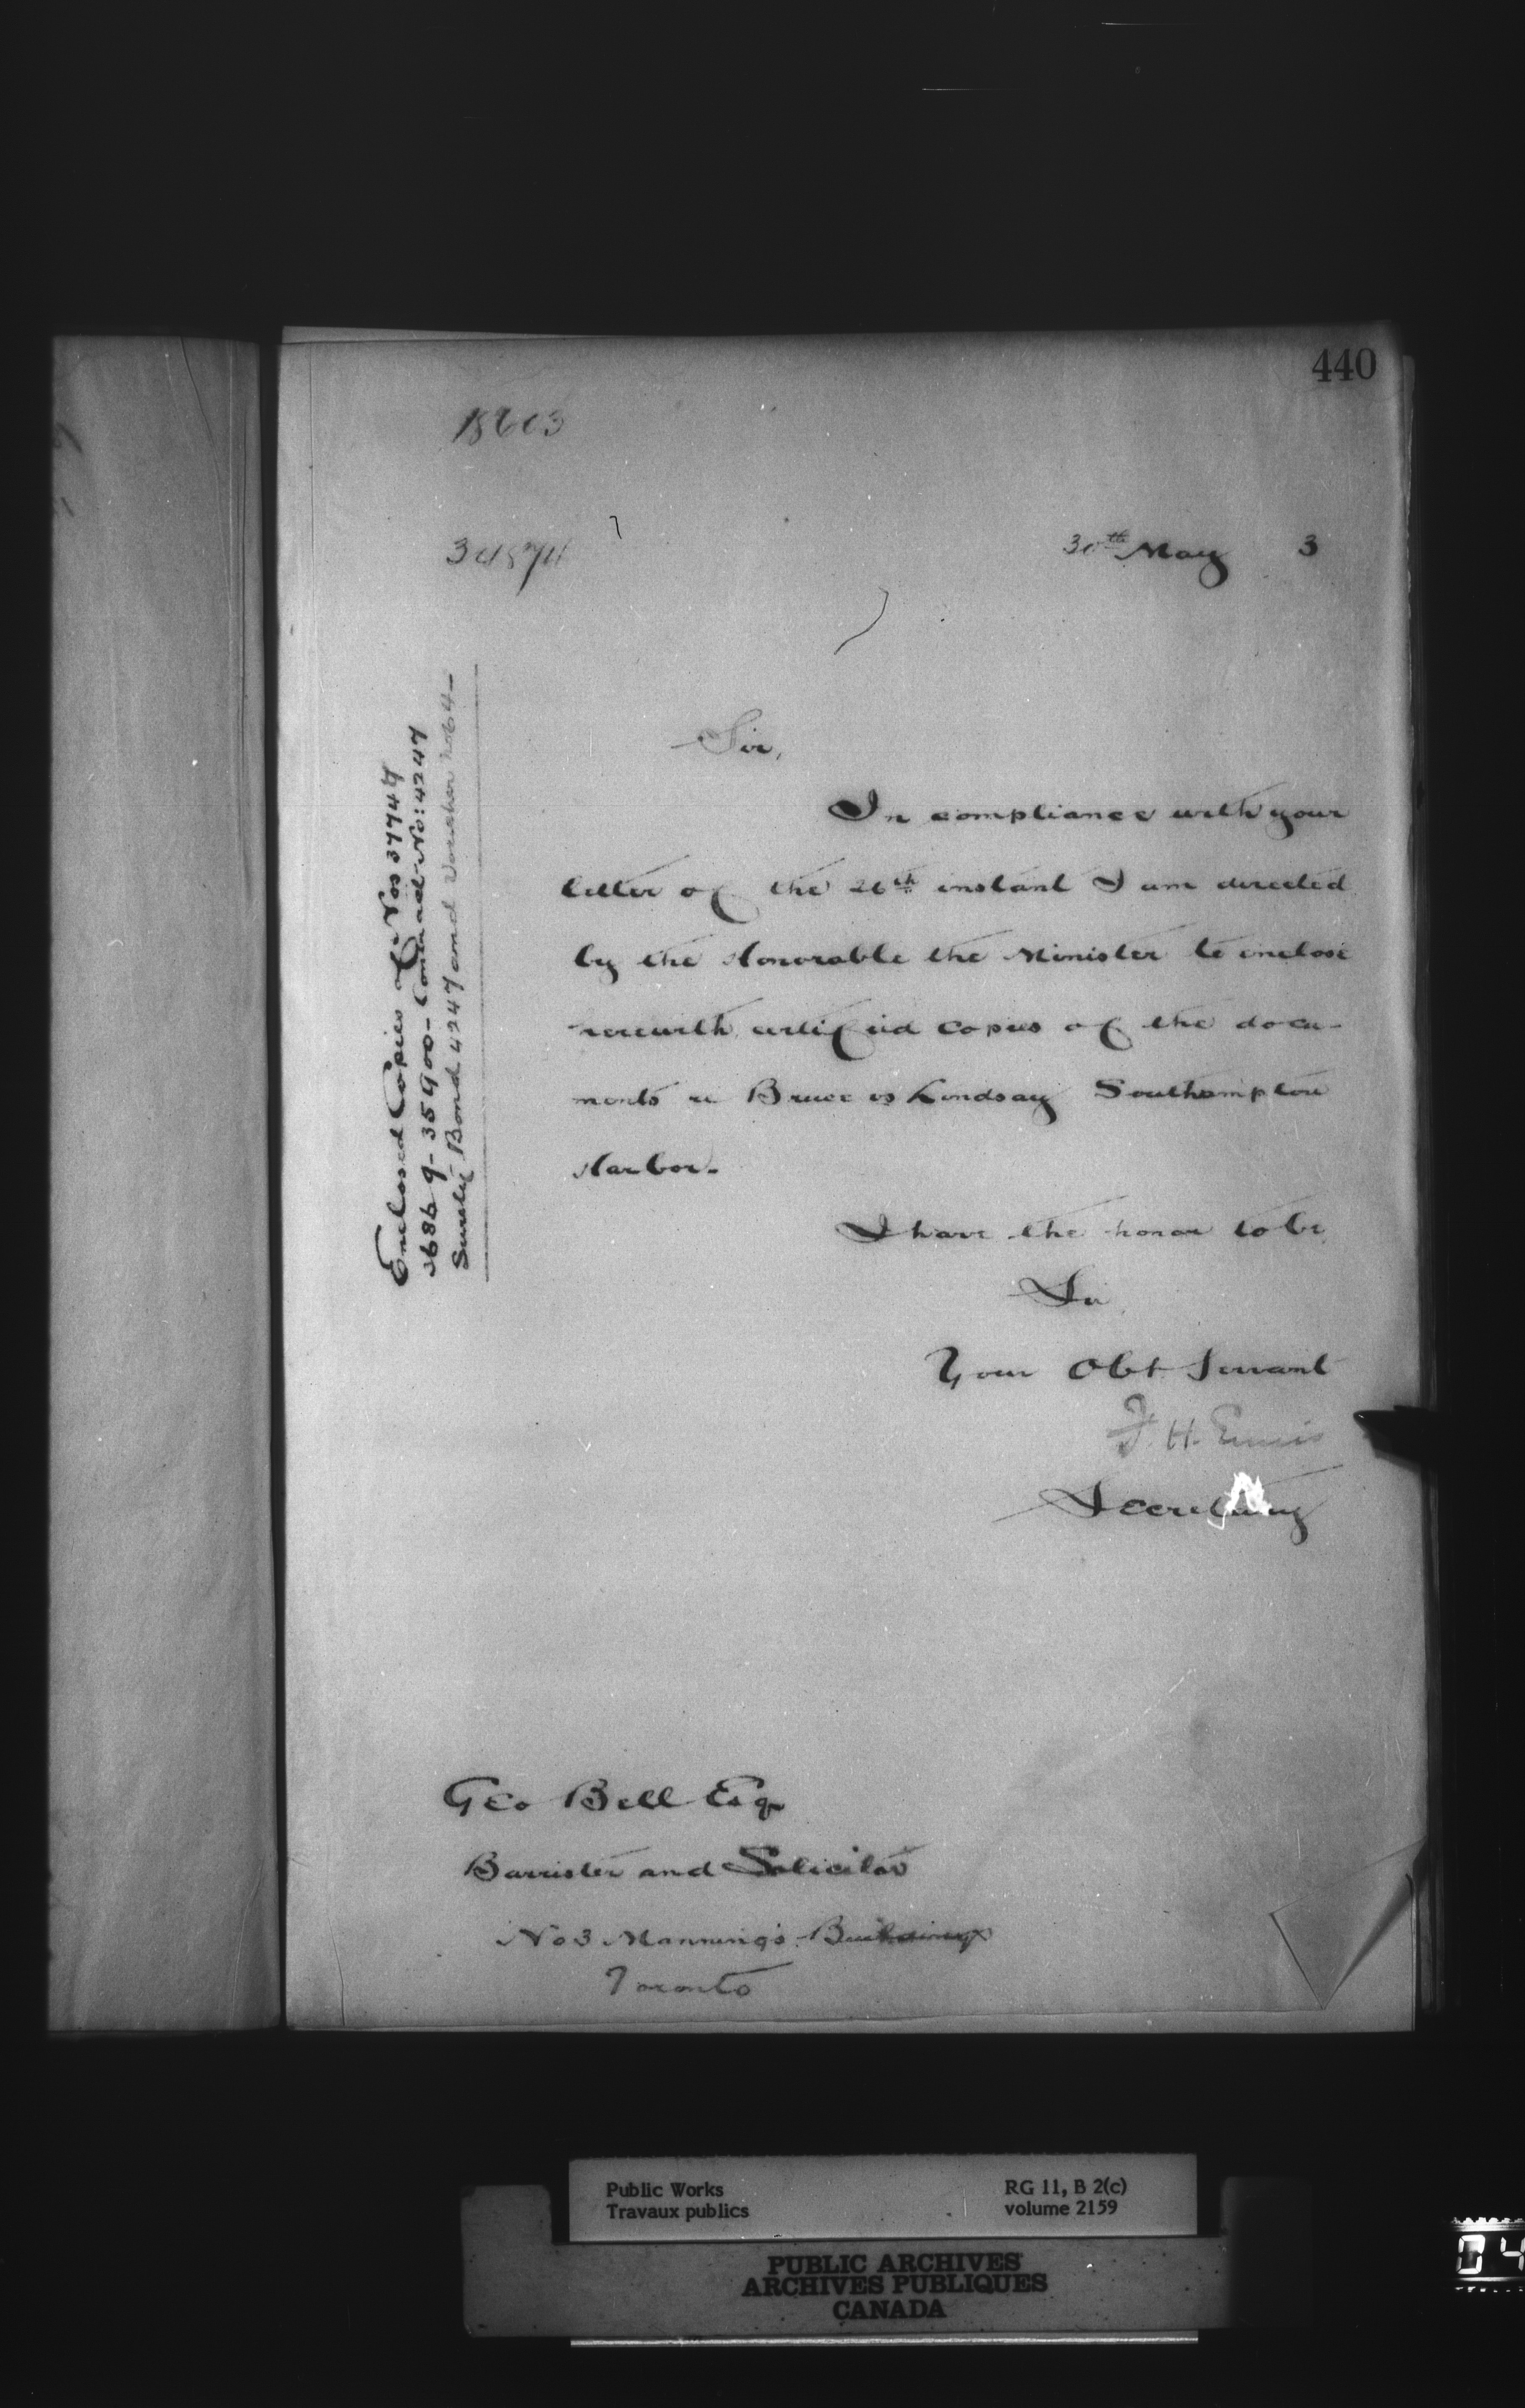 440
18603
30th May 3
Sir,
In compliance with your
letter of the 26th instant I am directed
by the Honorable the Minister to enclose
herewith certified copies of the docu-
ments re Bruce vs Lindsay Southampton
Harbor.
I have the honor to be
Sir
Your Obt Servant
F. H. Ennis
Secretary
Enclosed Copies of Nos 37749
36869 - 35900 - Contract No: 4247
Surety Bond 4247 and Voucher No 64 -
Geo Bell Esq
Barrister and Solicitor
No 3 Manning's Buildings
Toronto
Public Works
Travaux publics
RG 11, B 2(c)
volume 2159
PUBLIC ARCHIVES
ARCHIVES PUBLIQUES
CANADA
04